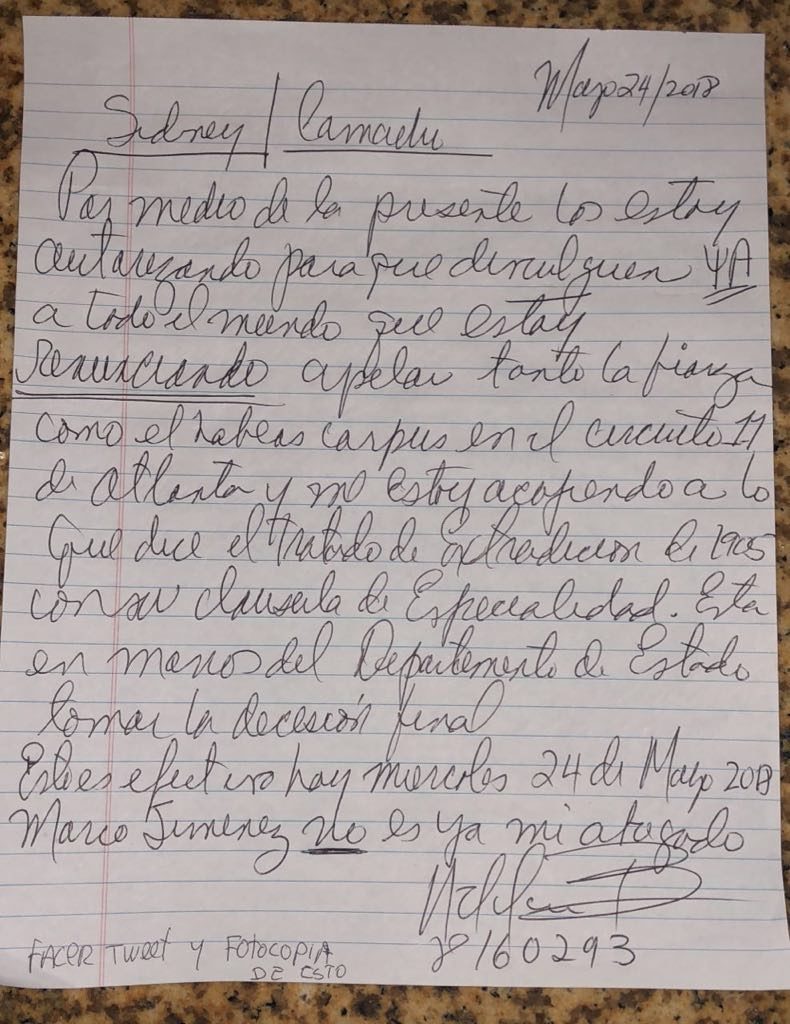 Mayo 24/2018
Sidney / Camachu
Por medio de la presente los estoy
autorizando para que divulguen YA
a todo el mundo que estoy
renunciando apelar tanto la fianza
como el habeas corpus en el circuito 11
de atlanta y me estoy acogiendo a lo
que dice el tratado de Extradicion de 1905
con su clausula de Especialidad. Esta
en manos del Departamento de Estado
tomar la decesión final
Esto es efectivo hoy miercoles 24 de Mayo 2018
Marco Jimenez no es ya mi abogado
28160293
FACER TWEET y FOTOCOPIA
DE ESTO